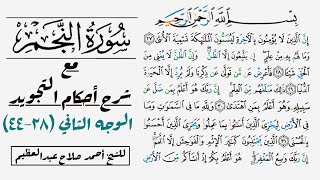 بِسْمِ اللَّهِ الرَّحْمَٰنِ الرَّحِيمِ
إِنَّ الَّذِينَ لَا يُؤْمِنُونَ بِالْآخِرَةِ لَيُسَمُّونَ الْمَلَائِكَةَ تَسْمِيَةَ الْأُنثَىٰ ٢٧
وَمَا لَهُم بِهِ مِنْ عِلْمٍ إِن يَتَّبِعُونَ إِلَّا الظَّنَّ وَإِنَّ الظَّنَّ لَا يُغْنِي مِنَ الْحَقِّ
شَيْئًا ٢٨ فَأَعْرِضْ عَن مَّن تَوَلَّىٰ عَن ذِكْرِنَا وَلَمْ يُرِدْ إِلَّا الْحَيَاةَ
الدُّنْيَا ٢٩ ذَٰلِكَ مَبْلَغُهُم مِّنَ الْعِلْمِ إِنَّ رَبَّكَ هُوَ أَعْلَمُ بِمَن ضَلَّ عَن
سَبِيلِهِ وَهُوَ أَعْلَمُ بِمَنِ اهْتَدَىٰ ٣٠ وَلِلَّهِ مَا فِي السَّمَاوَاتِ وَمَا فِي
الْأَرْضِ لِيَجْزِيَ الَّذِينَ أَسَاءُوا بِمَا عَمِلُوا وَيَجْزِيَ الَّذِينَ أَحْسَنُوا
بِالْحُسْنَى ٣١ الَّذِينَ يَجْتَنِبُونَ كَبَائِرَ الْإِثْمِ وَالْفَوَاحِشَ إِلَّا اللَّمَمَ
إِنَّ رَبَّكَ وَاسِعُ الْمَغْفِرَةِ هُوَ أَعْلَمُ بِكُمْ
سُورَةُ النَّجْمِ
مع
شرح أحكام التجويد
الوجه الثاني (٢٨-٤٤)
للشيخ أحمد صلاح عبدالعظيم